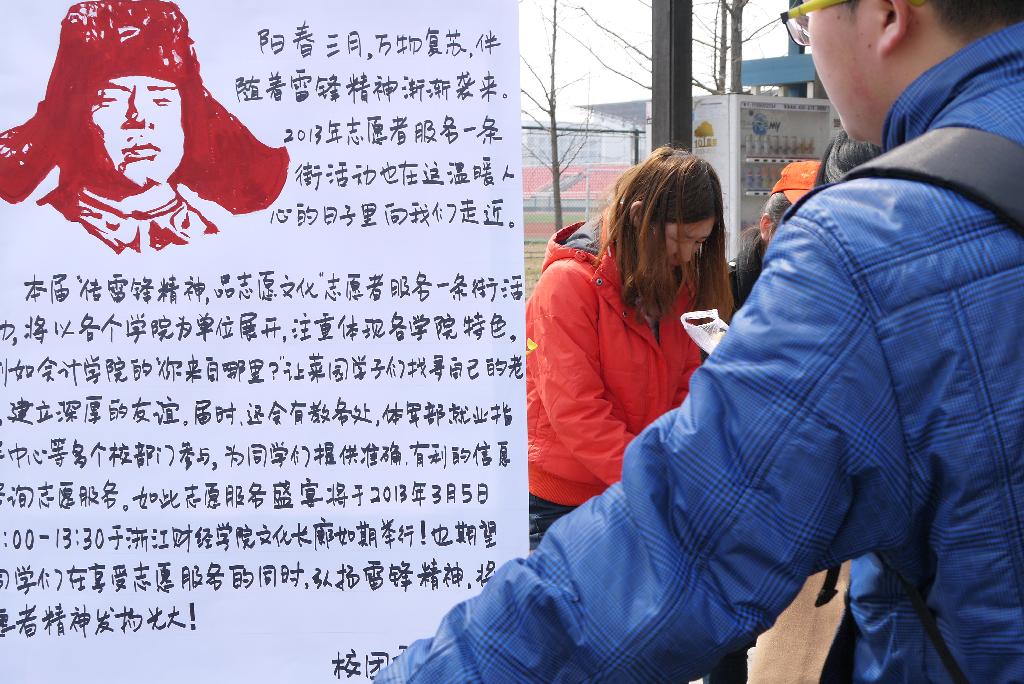 阳春三月,万物复苏,伴
随着雷锋精神渐渐袭来。
2013年志愿者服务一条
街活动也在这温暖人
心的日子里向我们走近。
本届"传雷锋精神,品志愿文化"志愿者服务一条街活
力,将以各个学院为单位展开,注重体现各学院特色。
如会计学院的"你来自哪里?"让菜园学子们找寻自己的老
,建立深厚的友谊。届时,还会有教务处,体军部就业指
中心等多个校部门参与,为同学们提供准确,有利的信息
询志愿服务。如此志愿服务盛宴将于2013年3月5日
:00-13:30于浙江财经学院文化长廊如期举行!也期望
同学们在享受志愿服务的同时,弘扬雷锋精神,将
愿者精神发扬光大!
校团